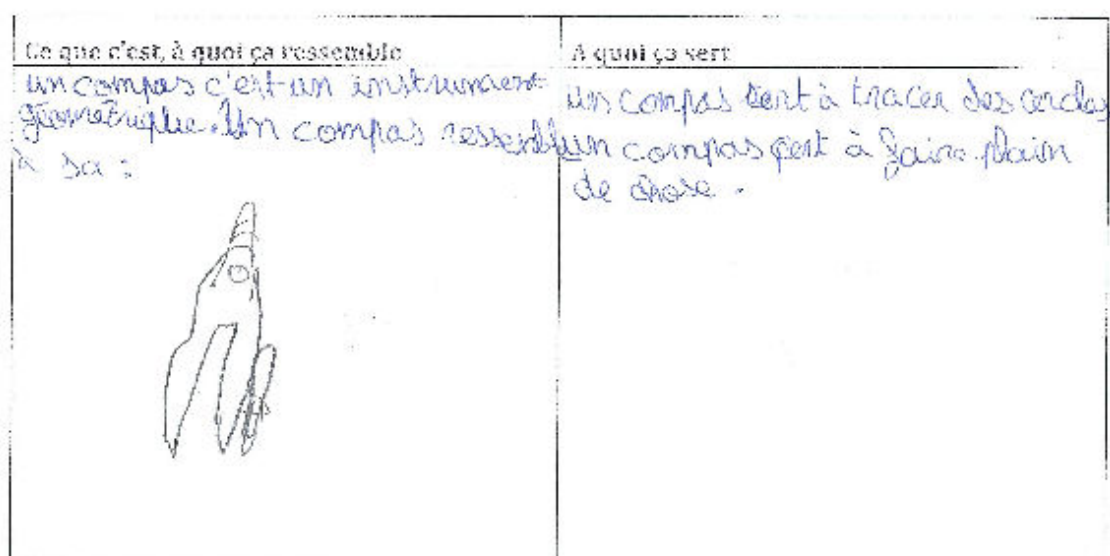 Ce que c'est, à quoi ça ressemble
un compas c'est un instrument
géometriqlue. Un compas ressemble
à sa :
A quoi ça sert
un compas sert à tracer des cercles
un compas sert à faire plain
de chose .